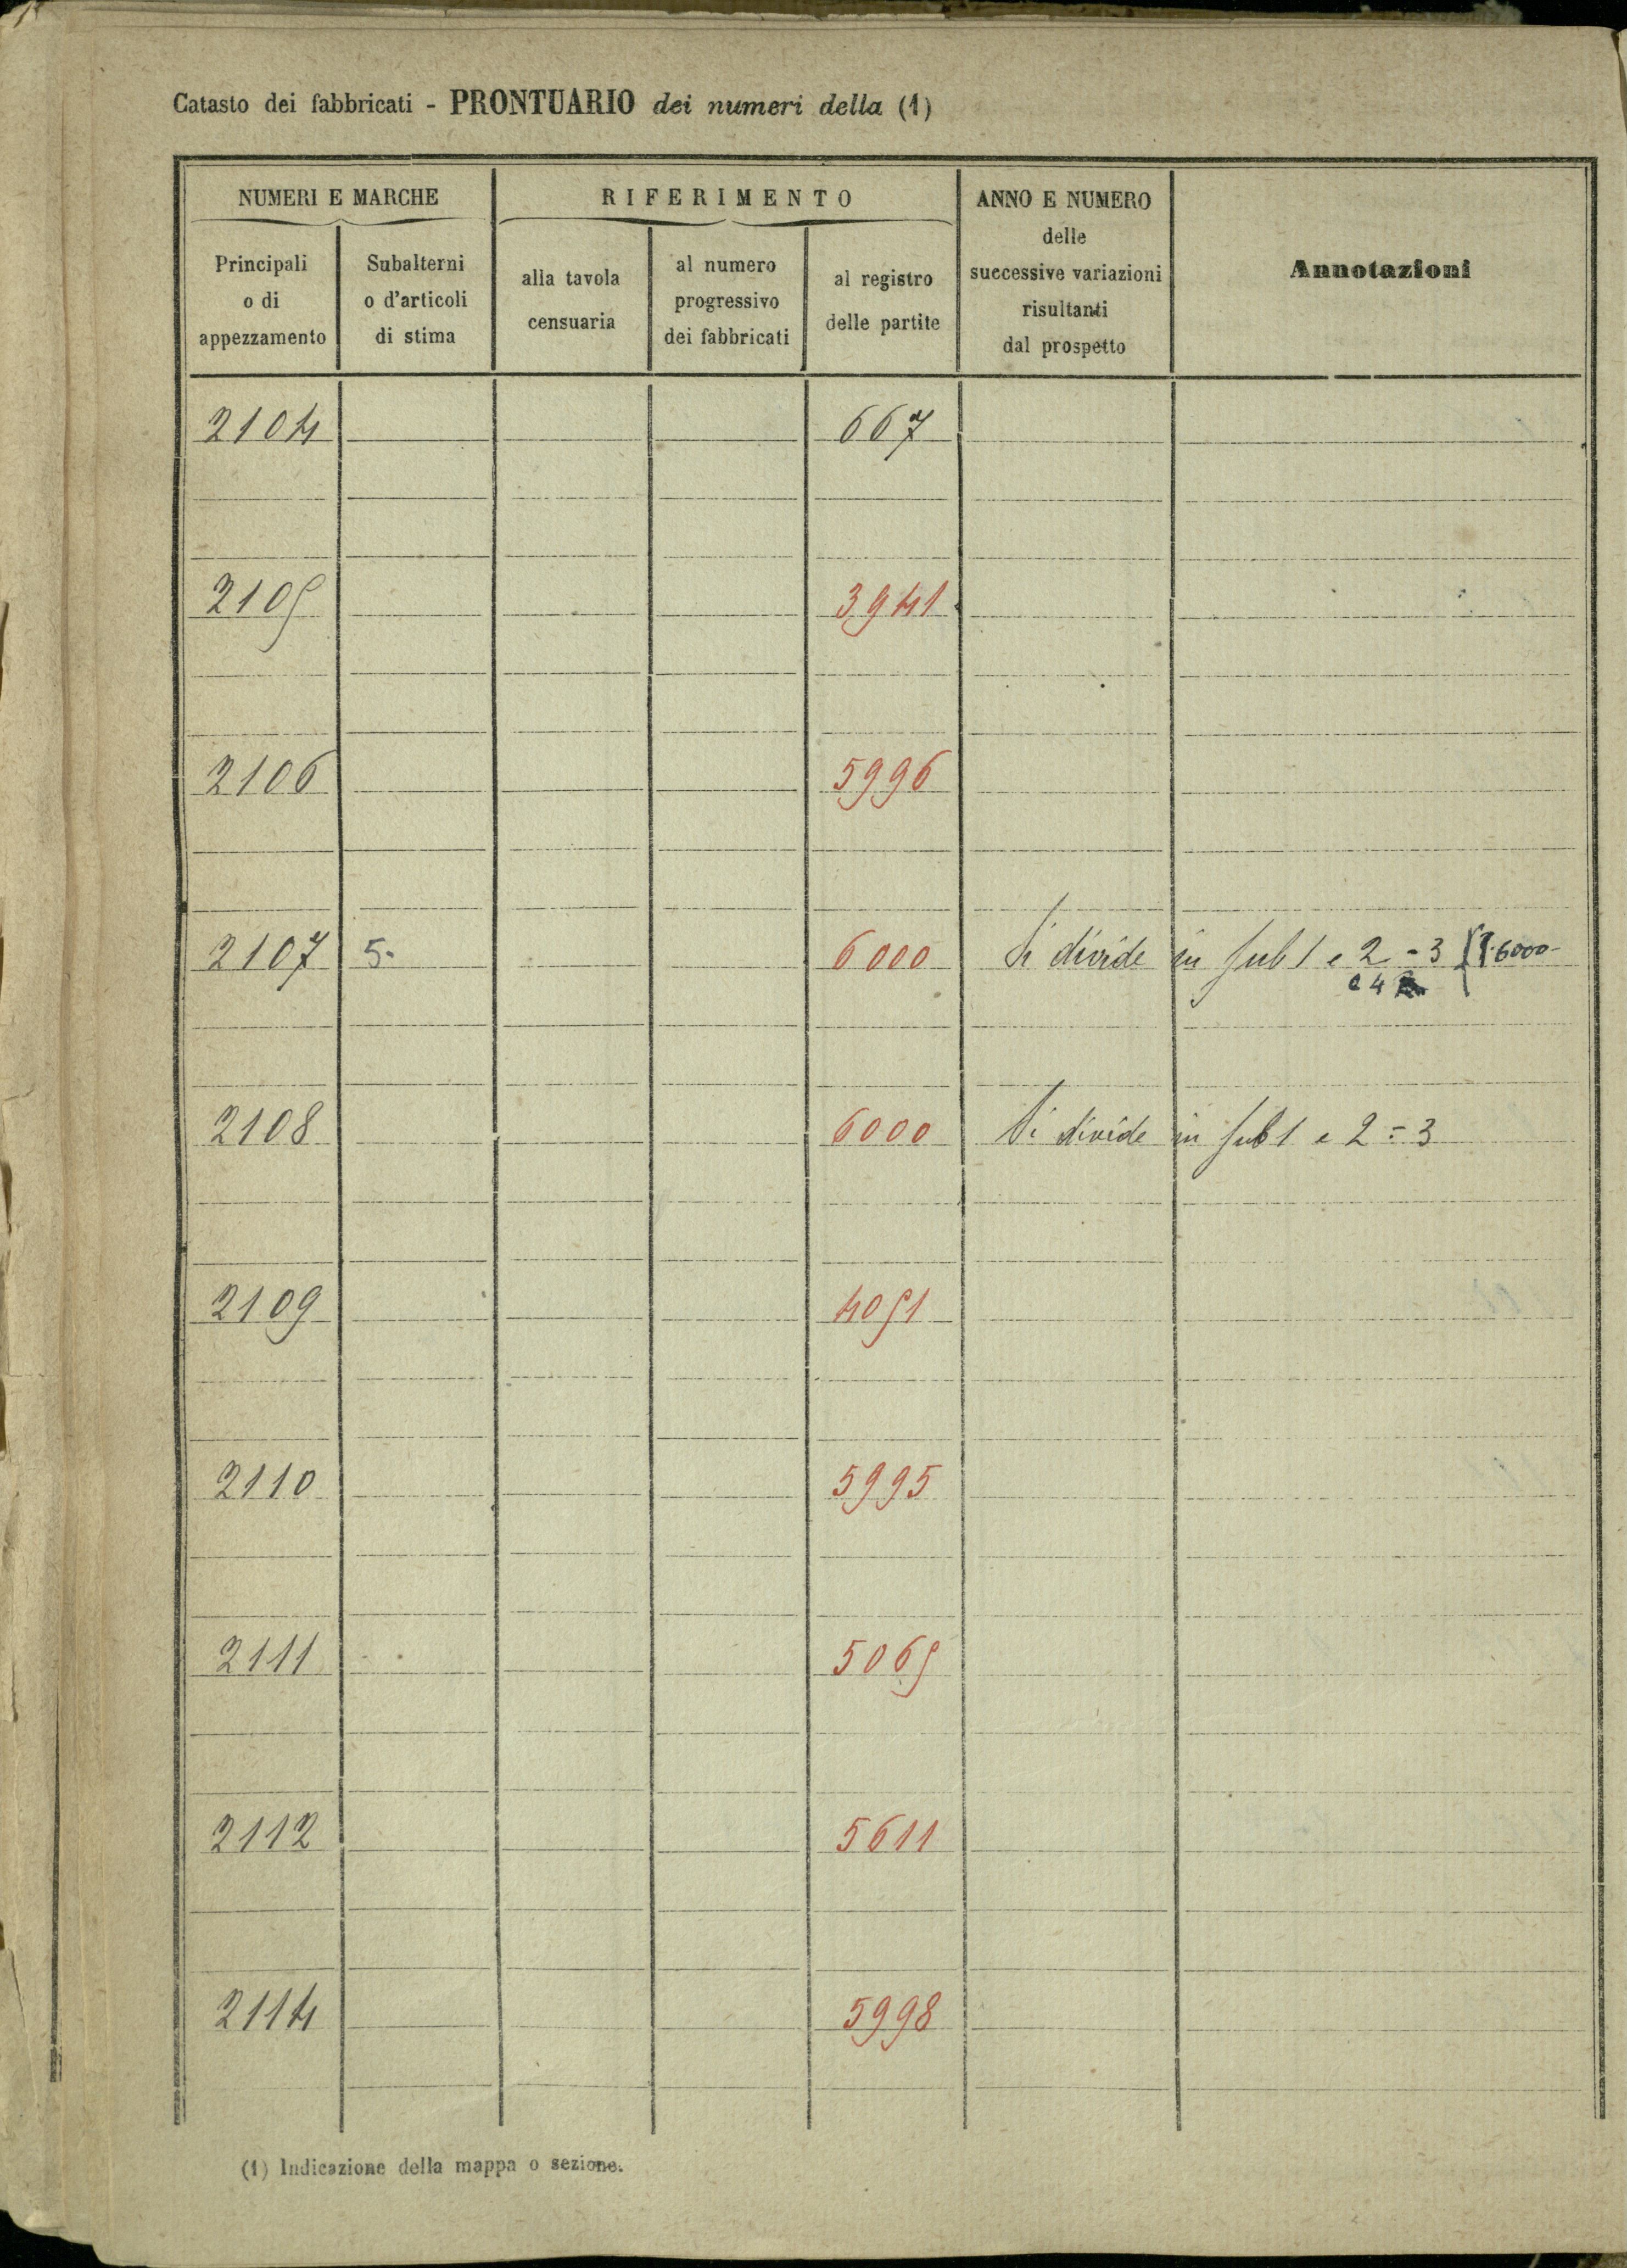 Catasto dei fabbricati - PRONTUARIO dei numeri della (1)
NUMERI E MARCHE
RIFERIMENTO
ANNO E NUMERO
delle
successive variazioni
risultanti
dal prospetto
Annotazioni
Principali
o di
appezzamento
Subalterni
o d'articoli
di stima
alla tavola
censuaria
al numero
progressivo
dei fabbricati
al registro
delle partite
2104 667
2105 3941
2106 5996
2107 5- 6000 Si divide in sub 1 e 2 = 3 { P. 6000-
e 4
2108 6000 Si divide in sub 1 e 2 = 3
2109 4051
2110 5995
2111 5065
2112 5611
2114 5998
(1) Indicazione della mappa o sezione.